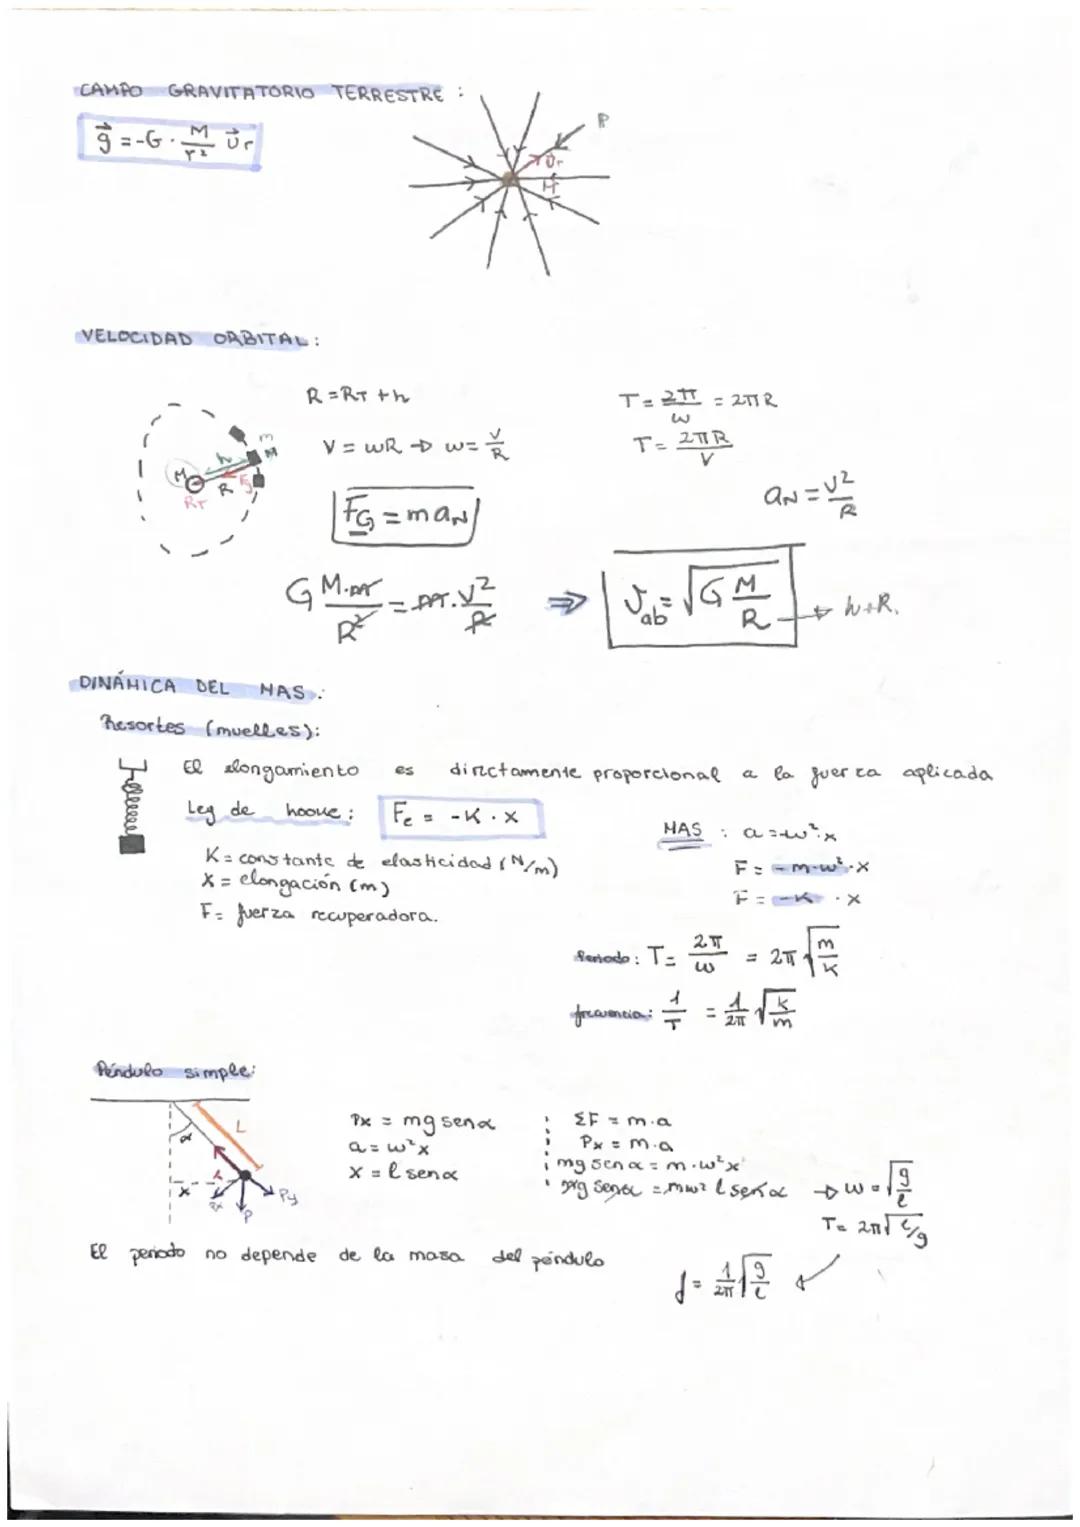 CAMPO GRAVITATORIO TERRESTRE :
g⃗ = -G · M/r² U⃗r
P
U⃗r
M
VELOCIDAD ORBITAL :
R = RT + h
T = 2π/ω = 2πR
V = ωR → ω = V/R
T = 2πR/V
m
h
M
M
R
Fg
RT
aN = V²/R
FG = m aN
G M·m/R² = m·V²/R ⇒ Vab = √(G M/R) → h+R.
DINÁMICA DEL MAS :
Resortes (muelles):
El elongamiento es directamente proporcional a la fuerza aplicada
Ley de hooke : Fe = -K · x
MAS : a = -ω²·x
K = constante de elasticidad (N/m)
F = -m·ω²·x
X = elongación (m)
F = -K · x
F = fuerza recuperadora.
Periodo : T = 2π/ω = 2π√(m/K)
frecuencia : 1/T = 1/2π √(K/m)
Péndulo simple:
L
α
x
Px
P
Py
Px = mg senα
a = ω²x
x = l senα
ΣF = m·a
Px = m·a
mg senα = m·ω²x
mg senα = mω² l senα → ω = √(g/l)
T = 2π√(l/g)
El periodo no depende de la masa del péndulo
f = 1/2π √(g/l)